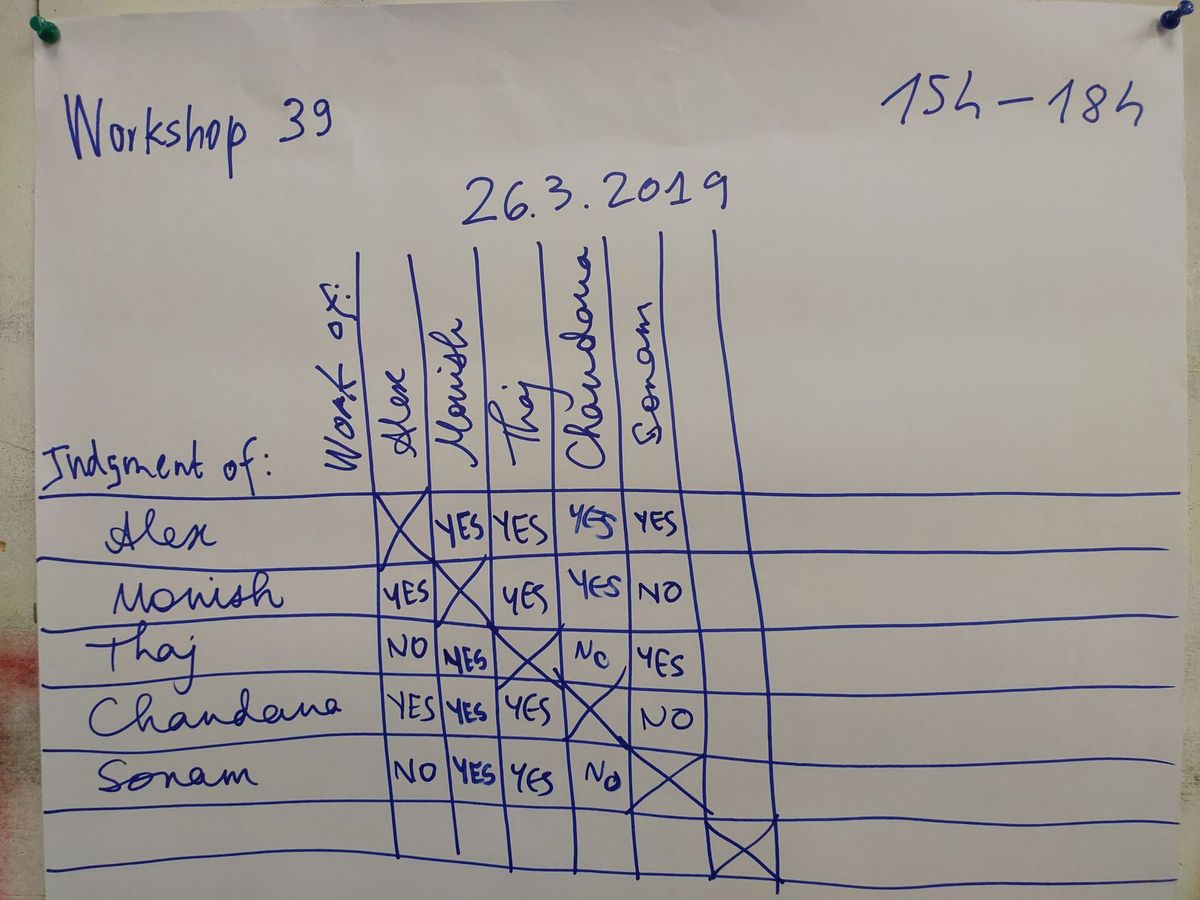 Workshop 39
15h - 18h
26.3.2019
Judgment of: Work of: Alex Monish Thaj Chandana Sonam
Alex YES YES YES YES
Monish YES YES YES NO
Thaj NO YES NO YES
Chandana YES YES YES NO
Sonam NO YES YES NO